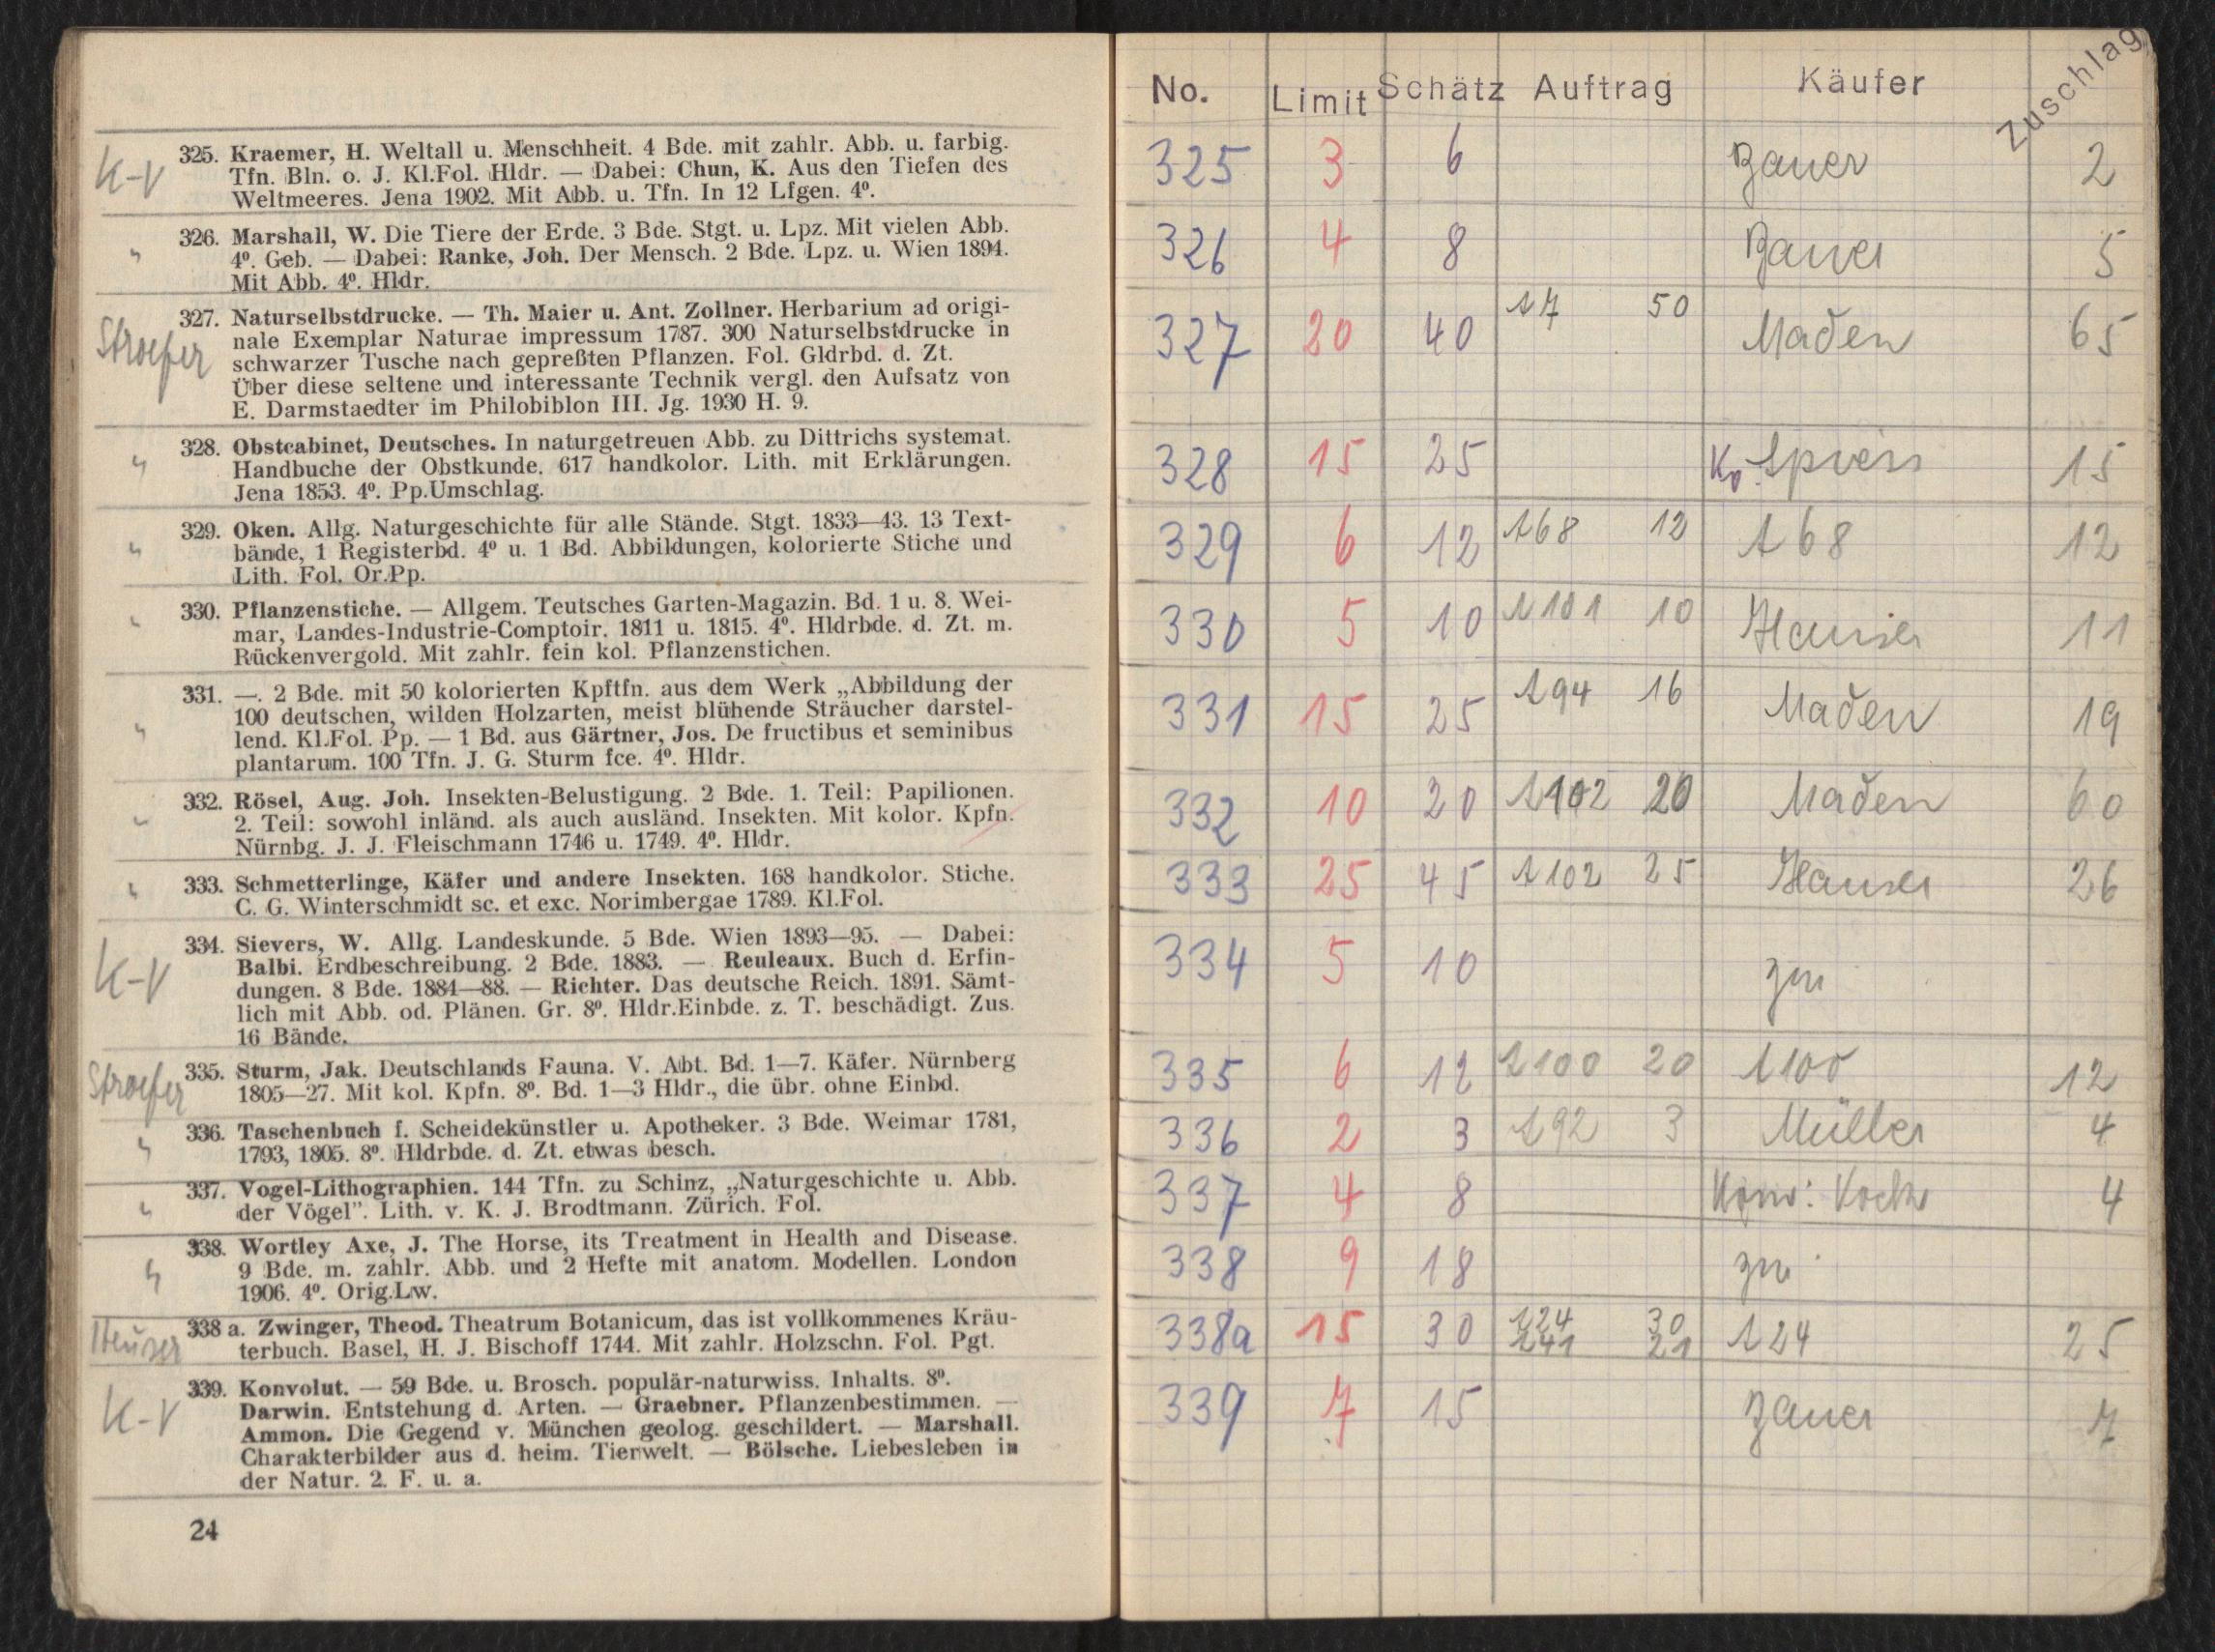 K-V
325. Kraemer, H. Weltall u. Menschheit. 4 Bde. mit zahlr. Abb. u. farbig.
Tfn. Bln. o. J. Kl.Fol. Hldr. — Dabei: Chun, K. Aus den Tiefen des
Weltmeeres. Jena 1902. Mit Abb. u. Tfn. In 12 Lfgen. 4⁰.
"
326. Marshall, W. Die Tiere der Erde. 3 Bde. Stgt. u. Lpz. Mit vielen Abb.
4⁰. Geb. — Dabei: Ranke, Joh. Der Mensch. 2 Bde. Lpz. u. Wien 1894.
Mit Abb. 4⁰. Hldr.
Stroefer
327. Naturselbstdrucke. — Th. Maier u. Ant. Zollner. Herbarium ad origi-
nale Exemplar Naturae impressum 1787. 300 Naturselbstdrucke in
schwarzer Tusche nach gepreßten Pflanzen. Fol. Gldrbd. d. Zt.
Über diese seltene und interessante Technik vergl. den Aufsatz von
E. Darmstaedter im Philobiblon III. Jg. 1930 H. 9.
"
328. Obstcabinet, Deutsches. In naturgetreuen Abb. zu Dittrichs systemat.
Handbuche der Obstkunde. 617 handkolor. Lith. mit Erklärungen.
Jena 1853. 4⁰. Pp.Umschlag.
"
329. Oken. Allg. Naturgeschichte für alle Stände. Stgt. 1833—43. 13 Text-
bände, 1 Registerbd. 4⁰ u. 1 Bd. Abbildungen, kolorierte Stiche und
Lith. Fol. Or.Pp.
"
330. Pflanzenstiche. — Allgem. Teutsches Garten-Magazin. Bd. 1 u. 8. Wei-
mar, Landes-Industrie-Comptoir. 1811 u. 1815. 4⁰. Hldrbde. d. Zt. m.
Rückenvergold. Mit zahlr. fein kol. Pflanzenstichen.
"
331. —. 2 Bde. mit 50 kolorierten Kpftfn. aus dem Werk „Abbildung der
100 deutschen, wilden Holzarten, meist blühende Sträucher darstel-
lend. Kl.Fol. Pp. — 1 Bd. aus Gärtner, Jos. De fructibus et seminibus
plantarum. 100 Tfn. J. G. Sturm fce. 4⁰. Hldr.
"
332. Rösel, Aug. Joh. Insekten-Belustigung. 2 Bde. 1. Teil: Papilionen.
2. Teil: sowohl inländ. als auch ausländ. Insekten. Mit kolor. Kpfn.
Nürnbg. J. J. Fleischmann 1746 u. 1749. 4⁰. Hldr.
"
333. Schmetterlinge, Käfer und andere Insekten. 168 handkolor. Stiche.
C. G. Winterschmidt sc. et exc. Norimbergae 1789. Kl.Fol.
K-V
334. Sievers, W. Allg. Landeskunde. 5 Bde. Wien 1893—95. — Dabei:
Balbi. Erdbeschreibung. 2 Bde. 1883. — Reuleaux. Buch d. Erfin-
dungen. 8 Bde. 1884—88. — Richter. Das deutsche Reich. 1891. Sämt-
lich mit Abb. od. Plänen. Gr. 8⁰. Hldr.Einbde. z. T. beschädigt. Zus.
16 Bände.
Stroefer
335. Sturm, Jak. Deutschlands Fauna. V. Abt. Bd. 1—7. Käfer. Nürnberg
1805—27. Mit kol. Kpfn. 8⁰. Bd. 1—3 Hldr., die übr. ohne Einbd.
"
336. Taschenbuch f. Scheidekünstler u. Apotheker. 3 Bde. Weimar 1781,
1793, 1805. 8⁰. Hldrbde. d. Zt. etwas besch.
"
337. Vogel-Lithographien. 144 Tfn. zu Schinz, „Naturgeschichte u. Abb.
der Vögel”. Lith. v. K. J. Brodtmann. Zürich. Fol.
"
338. Wortley Axe, J. The Horse, its Treatment in Health and Disease.
9 Bde. m. zahlr. Abb. und 2 Hefte mit anatom. Modellen. London
1906. 4⁰. Orig.Lw.
Heuser
338 a. Zwinger, Theod. Theatrum Botanicum, das ist vollkommenes Kräu-
terbuch. Basel, H. J. Bischoff 1744. Mit zahlr. Holzschn. Fol. Pgt.
K-V
339. Konvolut. — 59 Bde. u. Brosch. populär-naturwiss. Inhalts. 8⁰.
Darwin. Entstehung d. Arten. — Graebner. Pflanzenbestimmen. —
Ammon. Die Gegend v. München geolog. geschildert. — Marshall.
Charakterbilder aus d. heim. Tierwelt. — Bölsche. Liebesleben in
der Natur. 2. F. u. a.
24
No. Limit Schätz Auftrag Käufer Zuschlag
325 3 6 Bauer 2
326 4 8 Bauer 5
327 20 40 A7 50 Maden 65
328 15 25 15
329 6 12 A68 12 A68 12
330 5 10 A101 10 Hauser 11
331 15 25 A94 16 Maden 19
332 10 20 A102 20 Maden 60
333 25 45 A102 25 Hauser 26
334 5 10 zu
335 6 12 A100 20 A100 12
336 2 3 A92 3 Müller 4
337 4 8 Konv: Koch 4
338 9 18 zu
338a 15 30 A24 30 A24 25
A41 21
339 7 15 Bauer 7